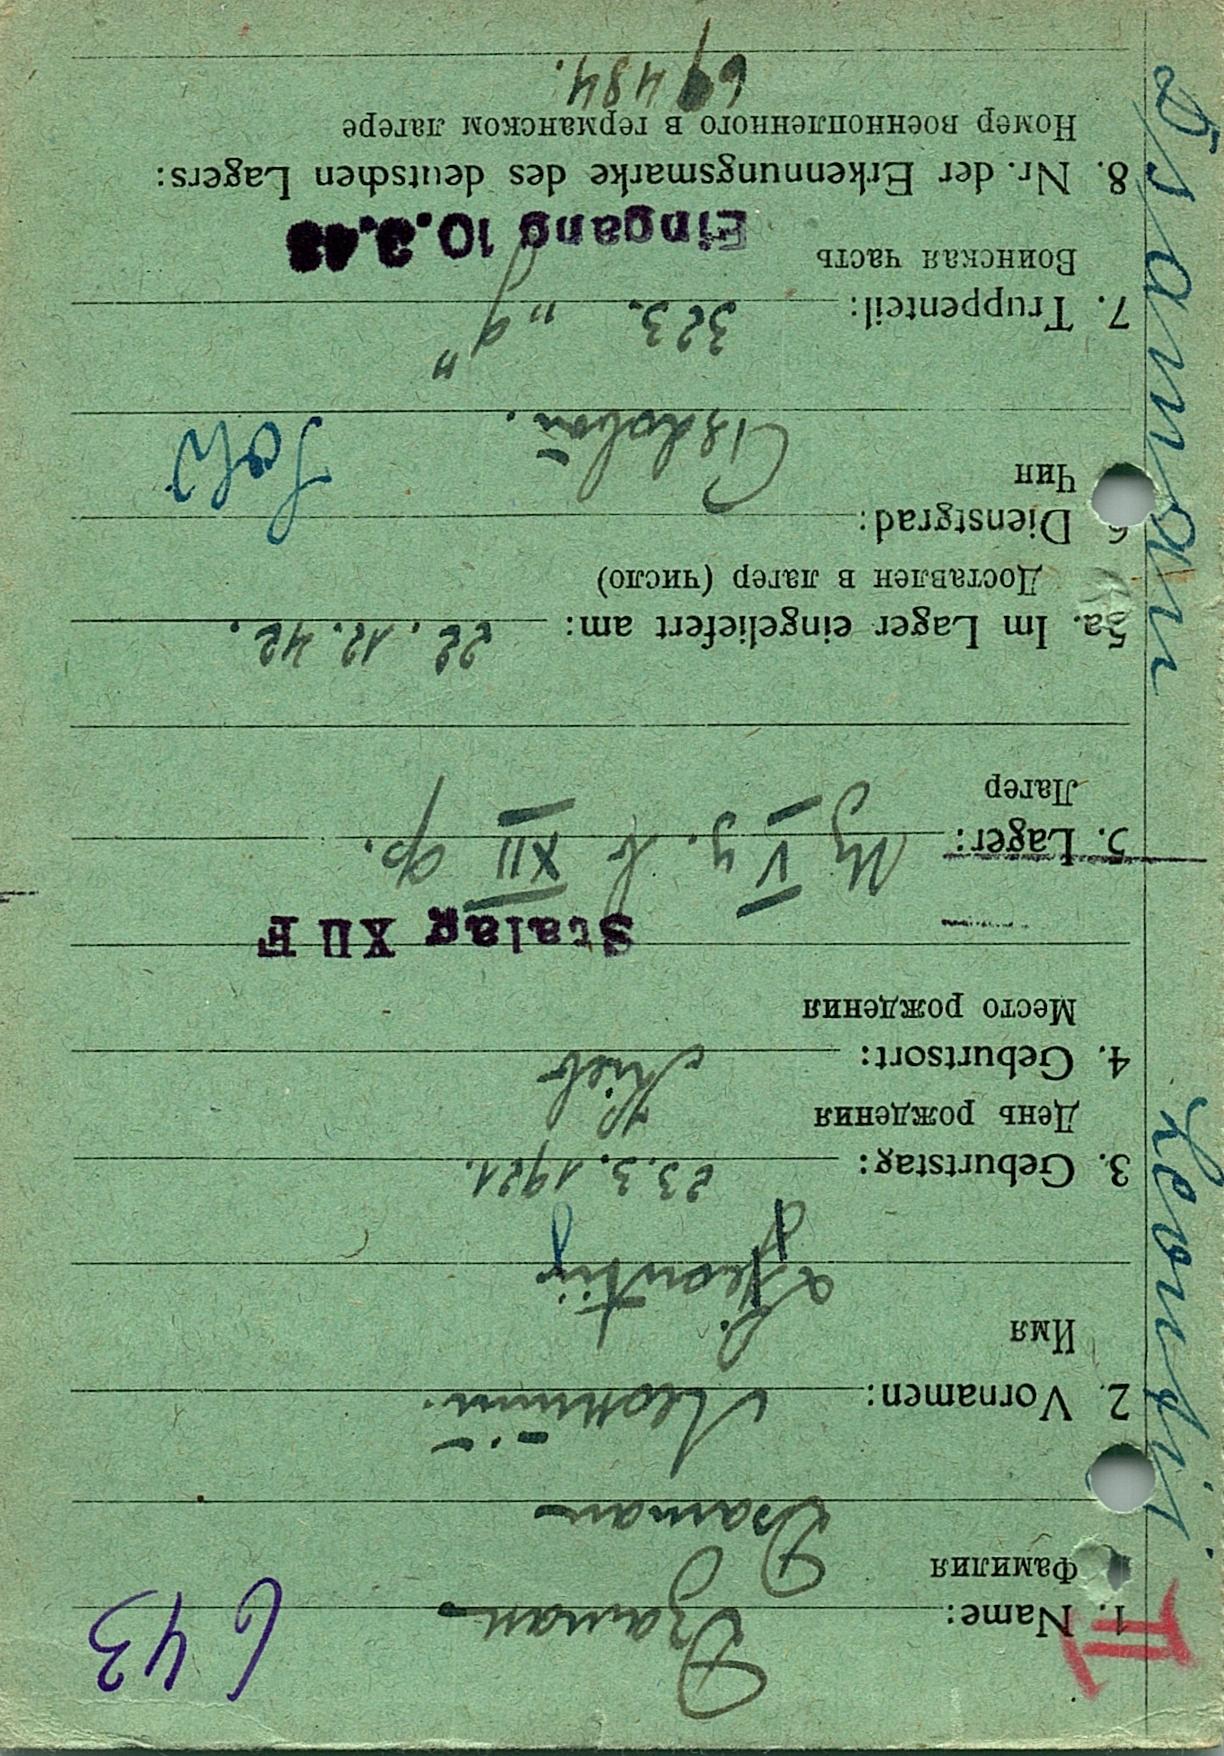 Dsaman Leontij.
II
643
1. Name: Dzaman
Фамилия
Dsaman
2. Vornamen:
Имя
Leontij
3. Geburtstag: 23. 3. 1921.
День рождения
4. Geburtsort: Kiev
Место рождения
Stalag XII F
5. Lager: V XII
Лагер
5a. Im Lager eingeliefert am: 22. 12. 42.
Доставлен в лагер (число)
6 Dienstgrad:
Чин
Sold
7. Truppenteil: 323.
Воинская часть
Eingang 10.3.43
8. Nr. der Erkennungsmarke des deutschen Lagers:
Номер военнопленного в германском лагере
69484.